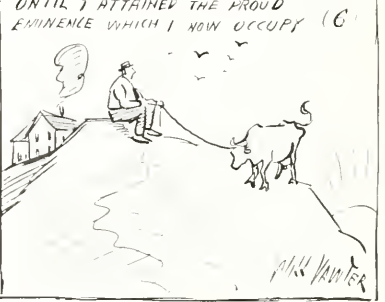 UNTIL I ATTAINED THE PROUD
EMINENCE WHICH I NOW OCCUPY (6
Will VAWTER